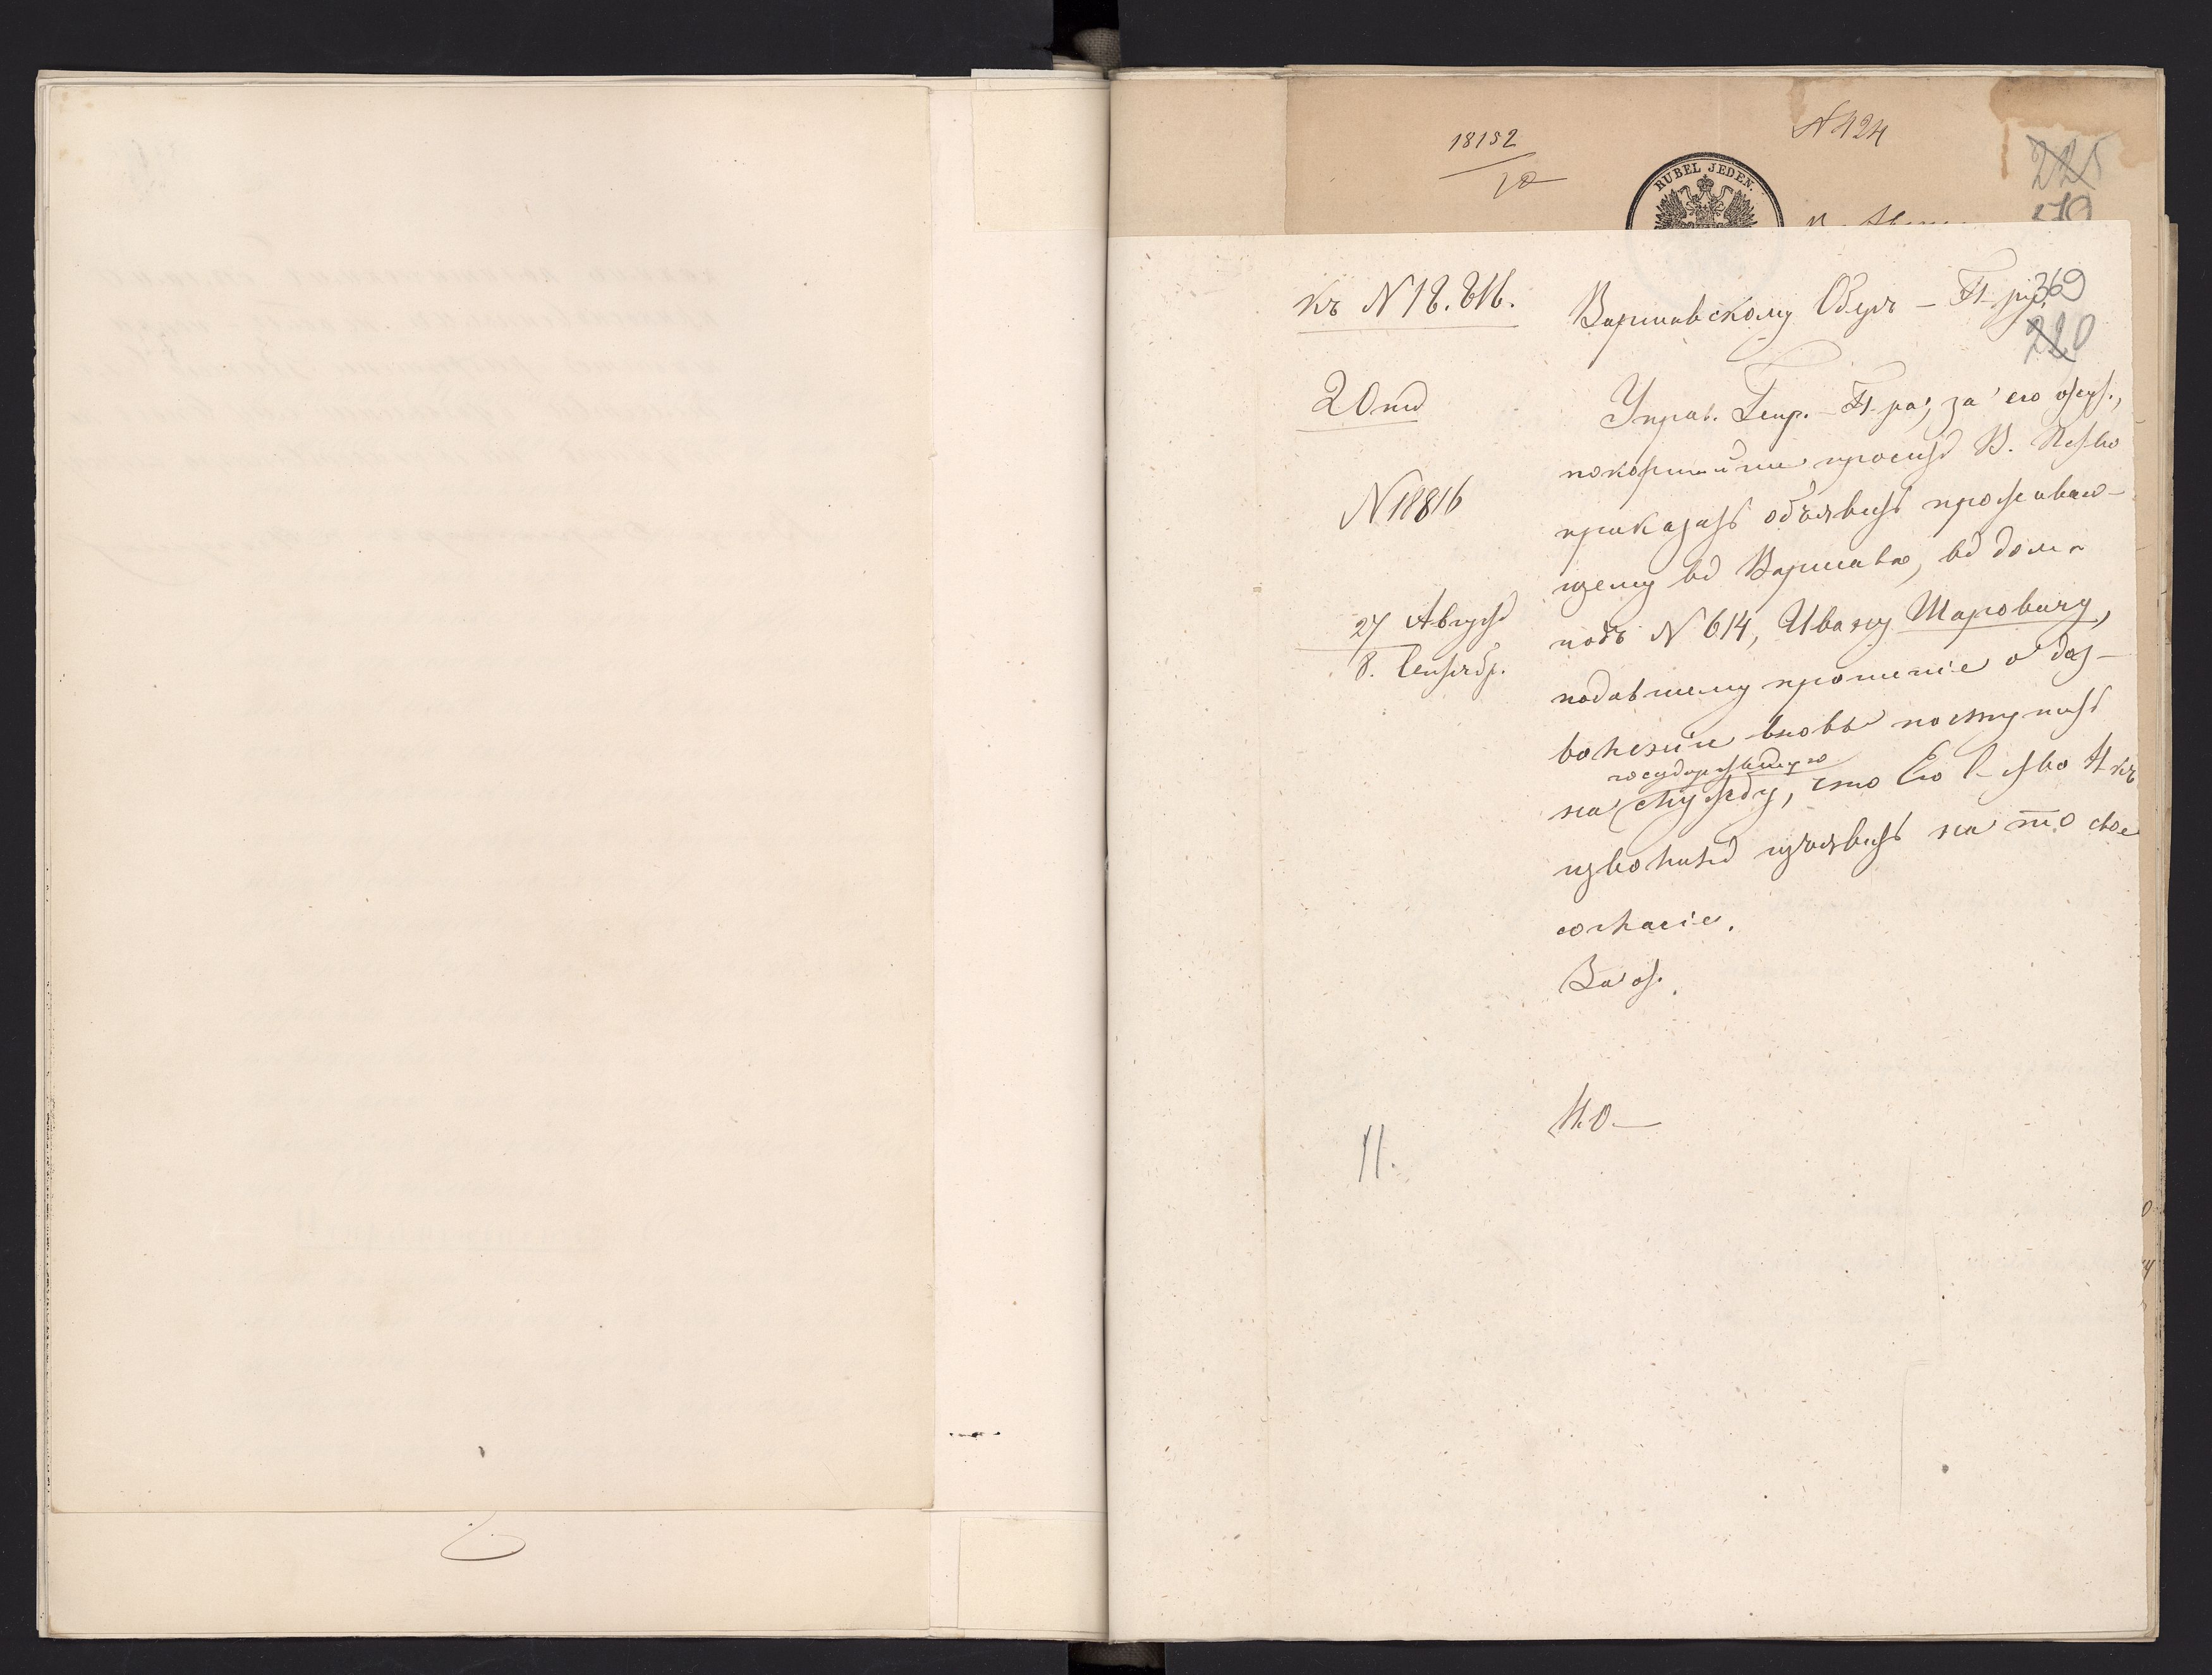 18152
10
N 424
225
RUBEL JEDEN.
369
220
къ N 18.816.
20 го
N 18816
27 Август
8. Сентябр.
Варшавскому Оберъ-
Управ. Генер. за его отсут.,
покорнѣйше проситъ В.
приказать объявить проживаю-
щему въ Варшавѣ, въ домѣ
подъ N 614, Ивану Шаровичу,
подавшему прошеніе о доз-
воленіи вновь поступить
государственную
на службу, что Его С-ство
изволилъ изъявить на то свое
согласіе.
За от.
Н. О.
11.